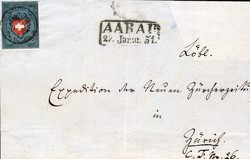 AARAU
27 Januar. 51.
Löbl.
Expedition der Neuen Zürcherzeitung
in
Zürich